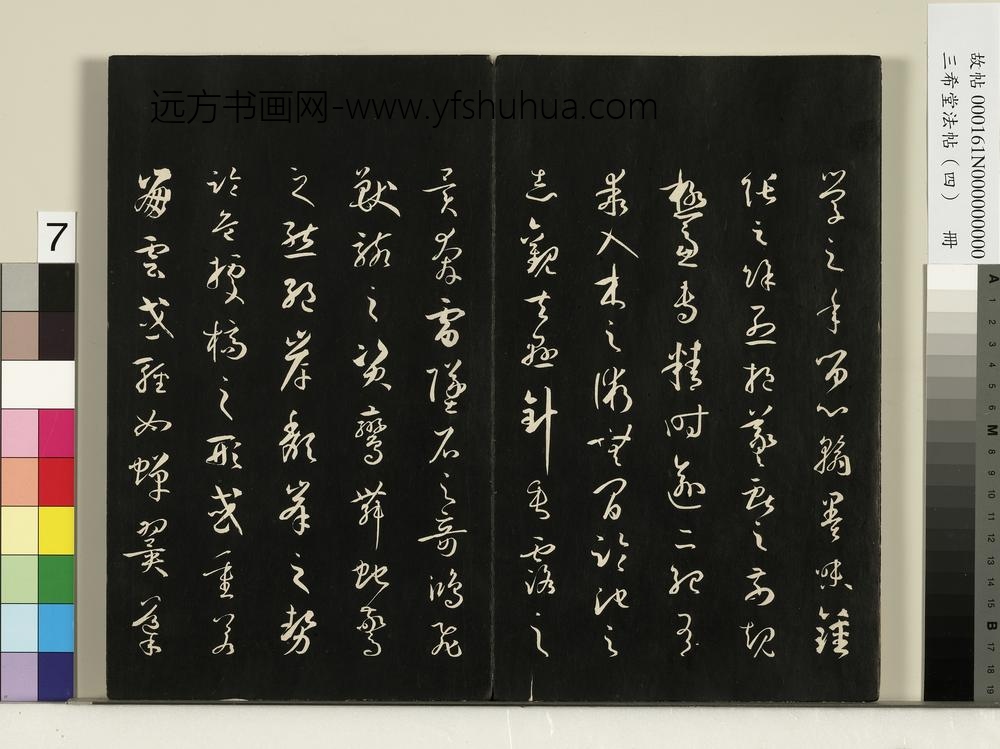 故帖 000161N000000000
三希堂法帖（四） 冊
远方书画网-www.yfshuhua.com
學之年留心翰墨味鍾
張之餘烈挹羲獻之前規
極慮專精時逾二紀有
乖入木之術無間臨池之
志觀夫懸針垂露之
異奔雷墜石之奇鴻飛
獸駭之資鸞舞蛇驚
之態絕岸頹峯之勢
臨危據槁之形或重若
崩雲或輕如蟬翼導
7
A 1 2 3 4 5 6 M 8 9 10 11 12 13 14 15 B 17 18 19